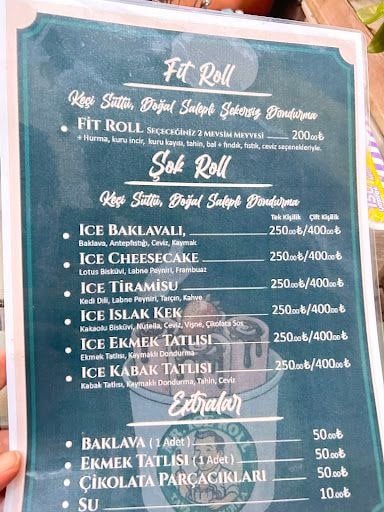 Fit Roll
Keçi Sütlü, Doğal Salepli Şekersiz Dondurma
• FİT ROLL SEÇECEĞİNİZ 2 MEVSİM MEYVESİ 200.00₺
+ Hurma, kuru incir, kuru kayısı, tahin, bal + fındık, fıstık, ceviz seçenekleriyle.
Şok Roll
Keçi Sütlü, Doğal Salepli Dondurma
Tek Kişilik Çift Kişilik
• ICE BAKLAVALI, 250.00₺/400.00₺
Baklava, Antepfıstığı, Ceviz, Kaymak
• ICE CHEESECAKE 250.00₺/400.00₺
Lotus Bisküvi, Labne Peyniri, Frambuaz
• ICE TİRAMİSU 250.00₺/400.00₺
Kedi Dili, Labne Peyniri, Tarçın, Kahve
• ICE ISLAK KEK 250.00₺/400.00₺
Kakaolu Bisküvi, Nutella, Ceviz, Vişne, Çikolata Sos
• ICE EKMEK TATLISI 250.00₺/400.00₺
Ekmek Tatlısı, Kaymaklı Dondurma
• ICE KABAK TATLISI 250.00₺/400.00₺
Kabak Tatlısı, Kaymaklı Dondurma, Tahin, Ceviz
Extralar
• BAKLAVA ( 1 Adet ) 50.00₺
• EKMEK TATLISI ( 1 Adet ) 50.00₺
• ÇİKOLATA PARÇACIKLARI 50.00₺
• SU 10.00₺